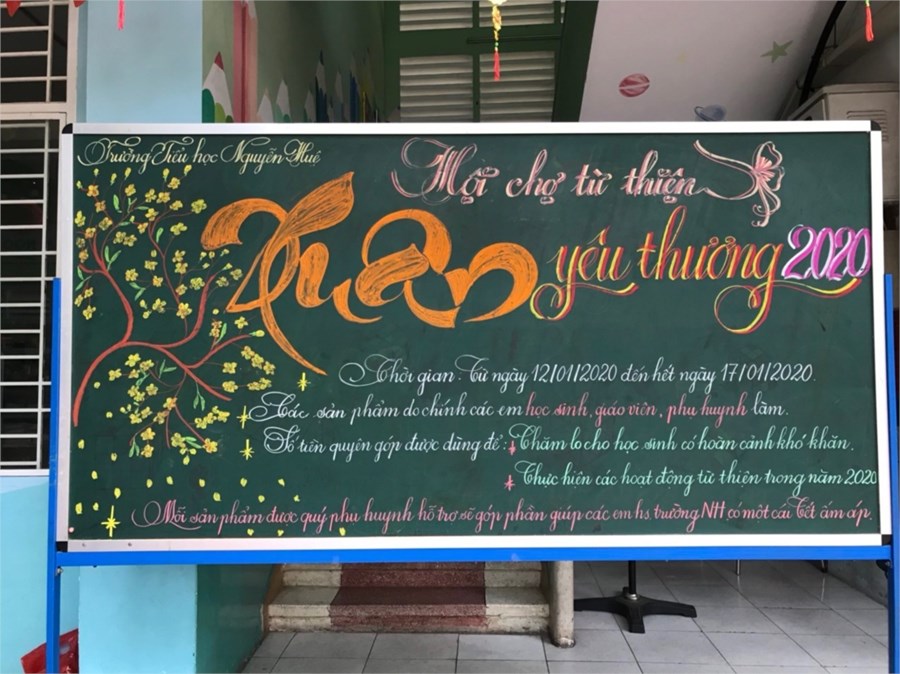 Trường Tiểu học Nguyễn Huệ
Hội chợ từ thiện
Xuân yêu thương 2020
Thời gian: Từ ngày 12/01/2020 đến hết ngày 17/01/2020.
Các sản phẩm do chính các em học sinh, giáo viên, phụ huynh làm.
Số tiền quyên góp được dùng để: Chăm lo cho học sinh có hoàn cảnh khó khăn.
Thực hiện các hoạt động từ thiện trong năm 2020
Mỗi sản phẩm được quý phụ huynh hỗ trợ sẽ góp phần giúp các em hs trường NH có một cái Tết ấm áp.